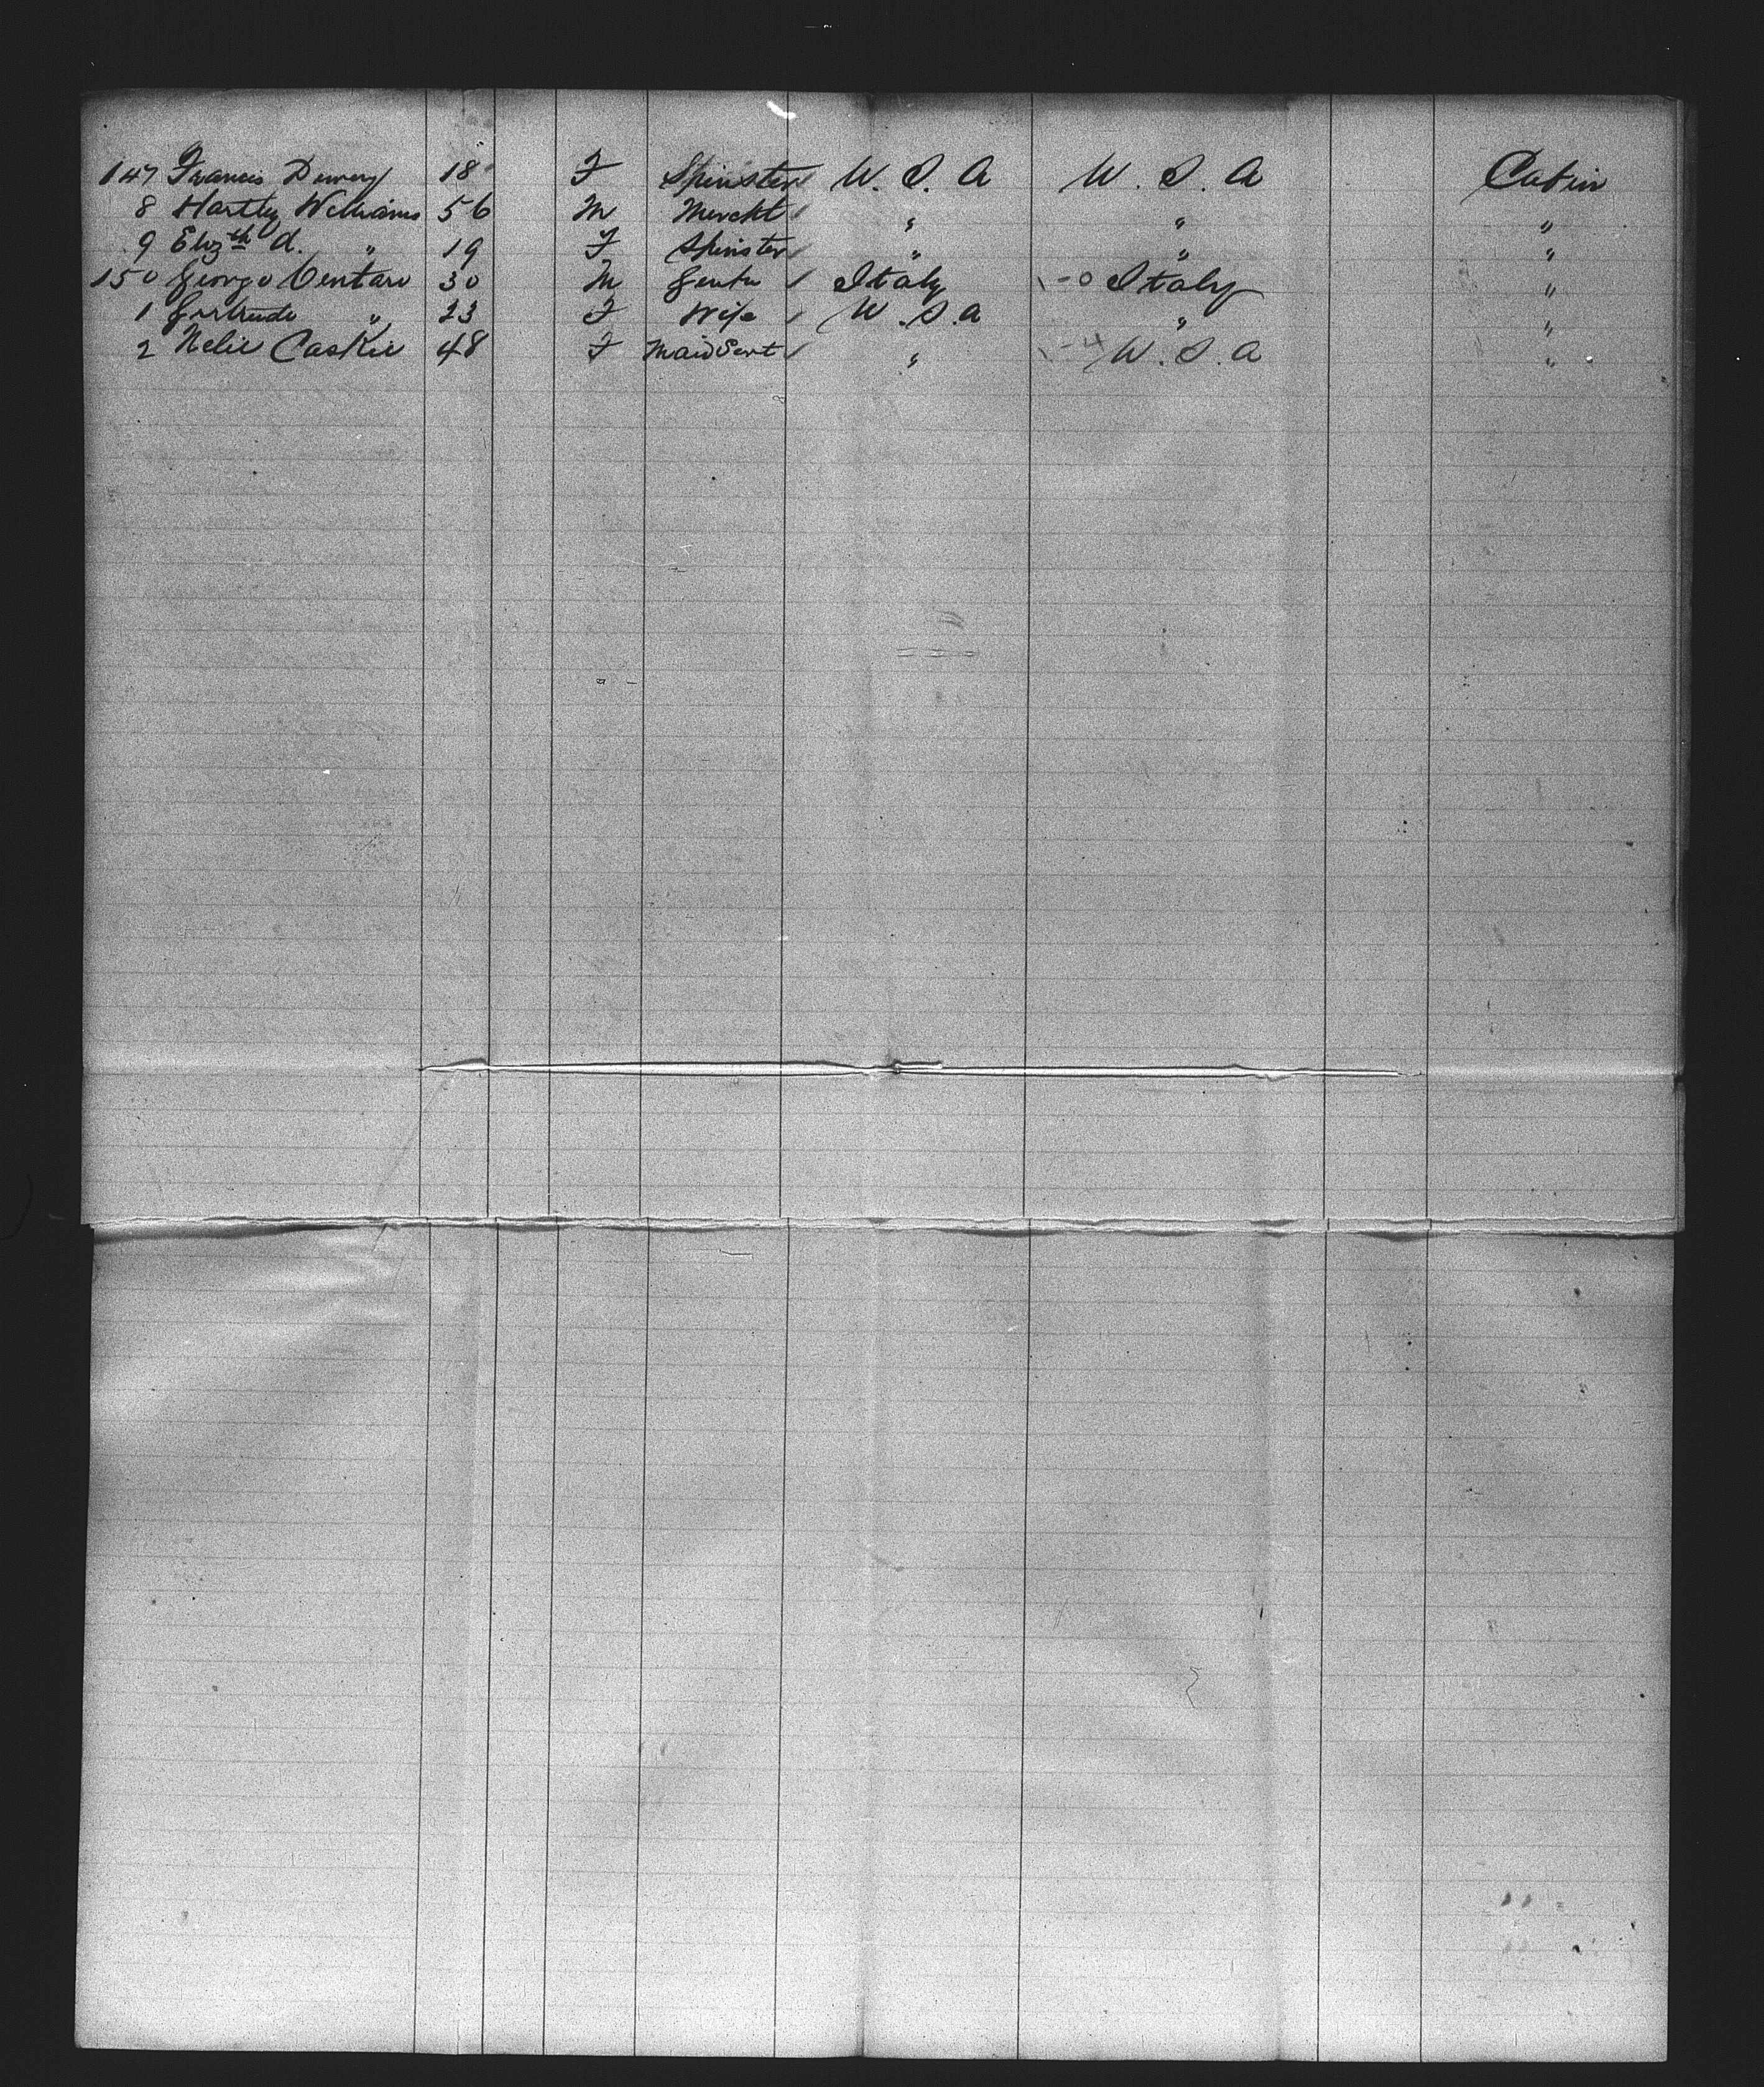 147 Frances Dewey 18 F Spinster U. S. A U. S. A Cabin
8 Hartley Williams 56 M Mercht " " "
9 Elizth A. " 19 F Spinster " " "
150 George Centaro 30 M Gentn Italy 1-0 Italy "
1 Gertrude " 23 F Wife U. S. A " "
2 Nelie Caskie 48 F Maid Servt " 1-4 U. S. A "